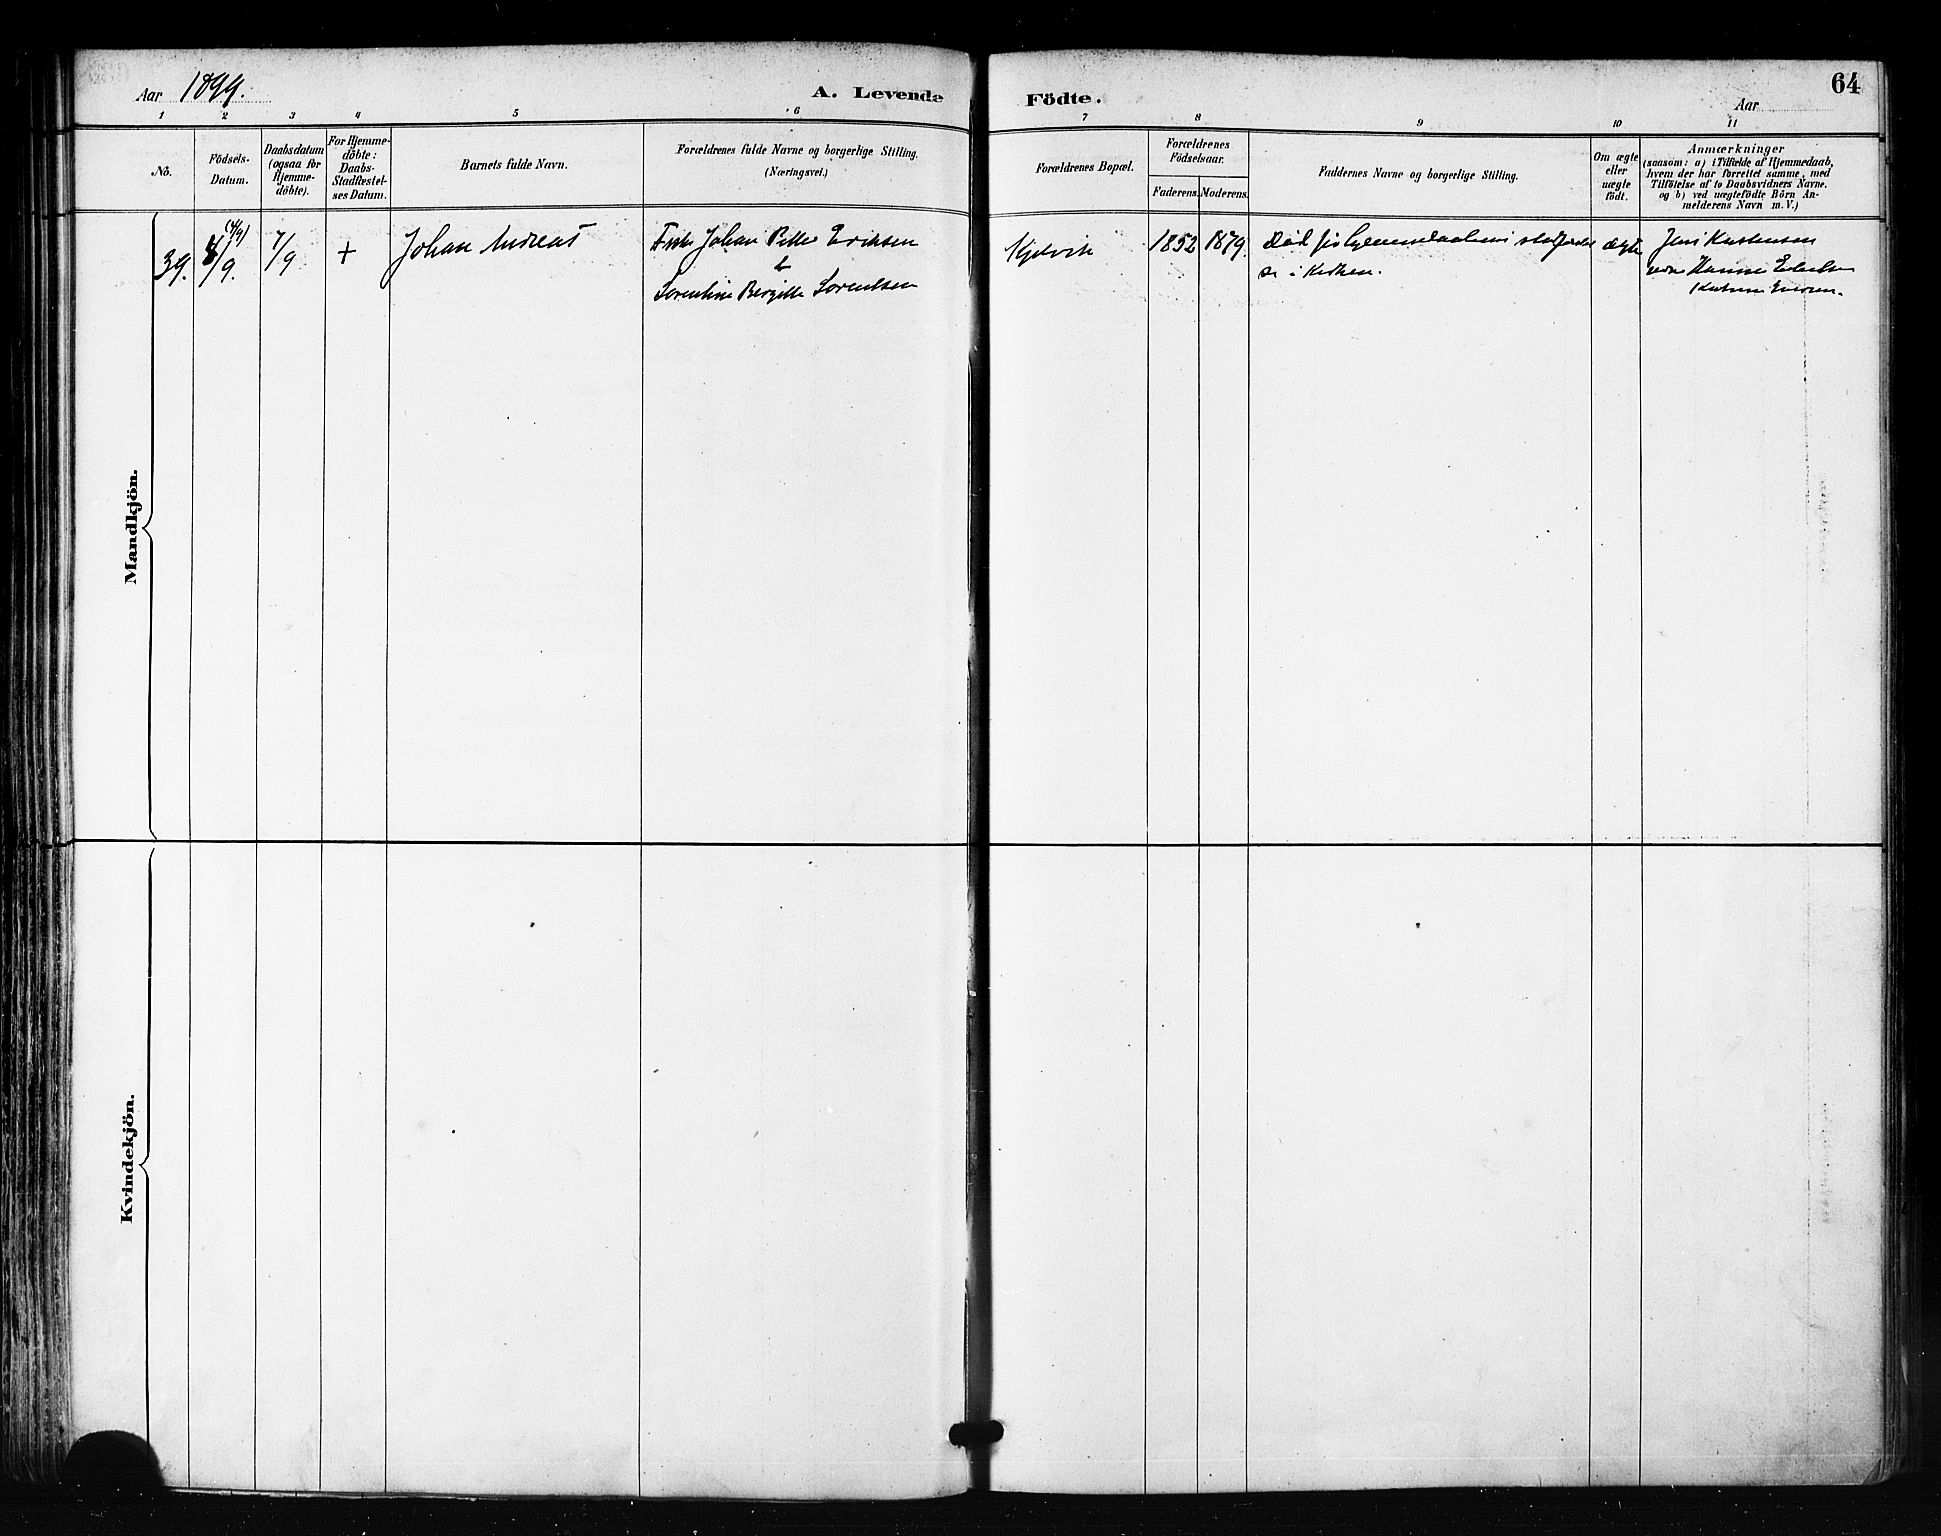 Aar 1899.
A. Levende
Födte.
Aar
64
1 2 3 4 5 6 7 8 9 10 11
No.
Födsels-
Datum.
Daabsdatum
(ogsaa for
Hjemme-
döbte).
For Hjemme-
döbte:
Daabs-
Stadfæstel-
ses Datum.
Barnets fulde Navn.
Forældrenes fulde Navne og borgerlige Stilling.
(Næringsvei.)
Forældrenes Bopæl.
Forældrenes
Födselsaar.
Faderens. Moderens.
Faddernes Navne og borgerlige Stilling.
Om ægte
eller
uægte
födt.
Anmærkninger
(saasom: a) i Tilfælde af Hjemmedaab,
hvem der har forrettet samme, med
Tilföielse af to Daabsvidners Navne.
og b) ved uægtefödte Börn An-
melderens Navn m. V.)
Mandkjön.
39.
/9.
7/9
+
Johan Andreas
Johan Petter Eriksen
&
Sorentine Bergitte Sorentsen
Kjelvik
1852
1879.
Död før Hjemmedaabens stadfæstel
se i Kirken.
ægte
Jens Karstensen
Hanna
Kvindekjön.